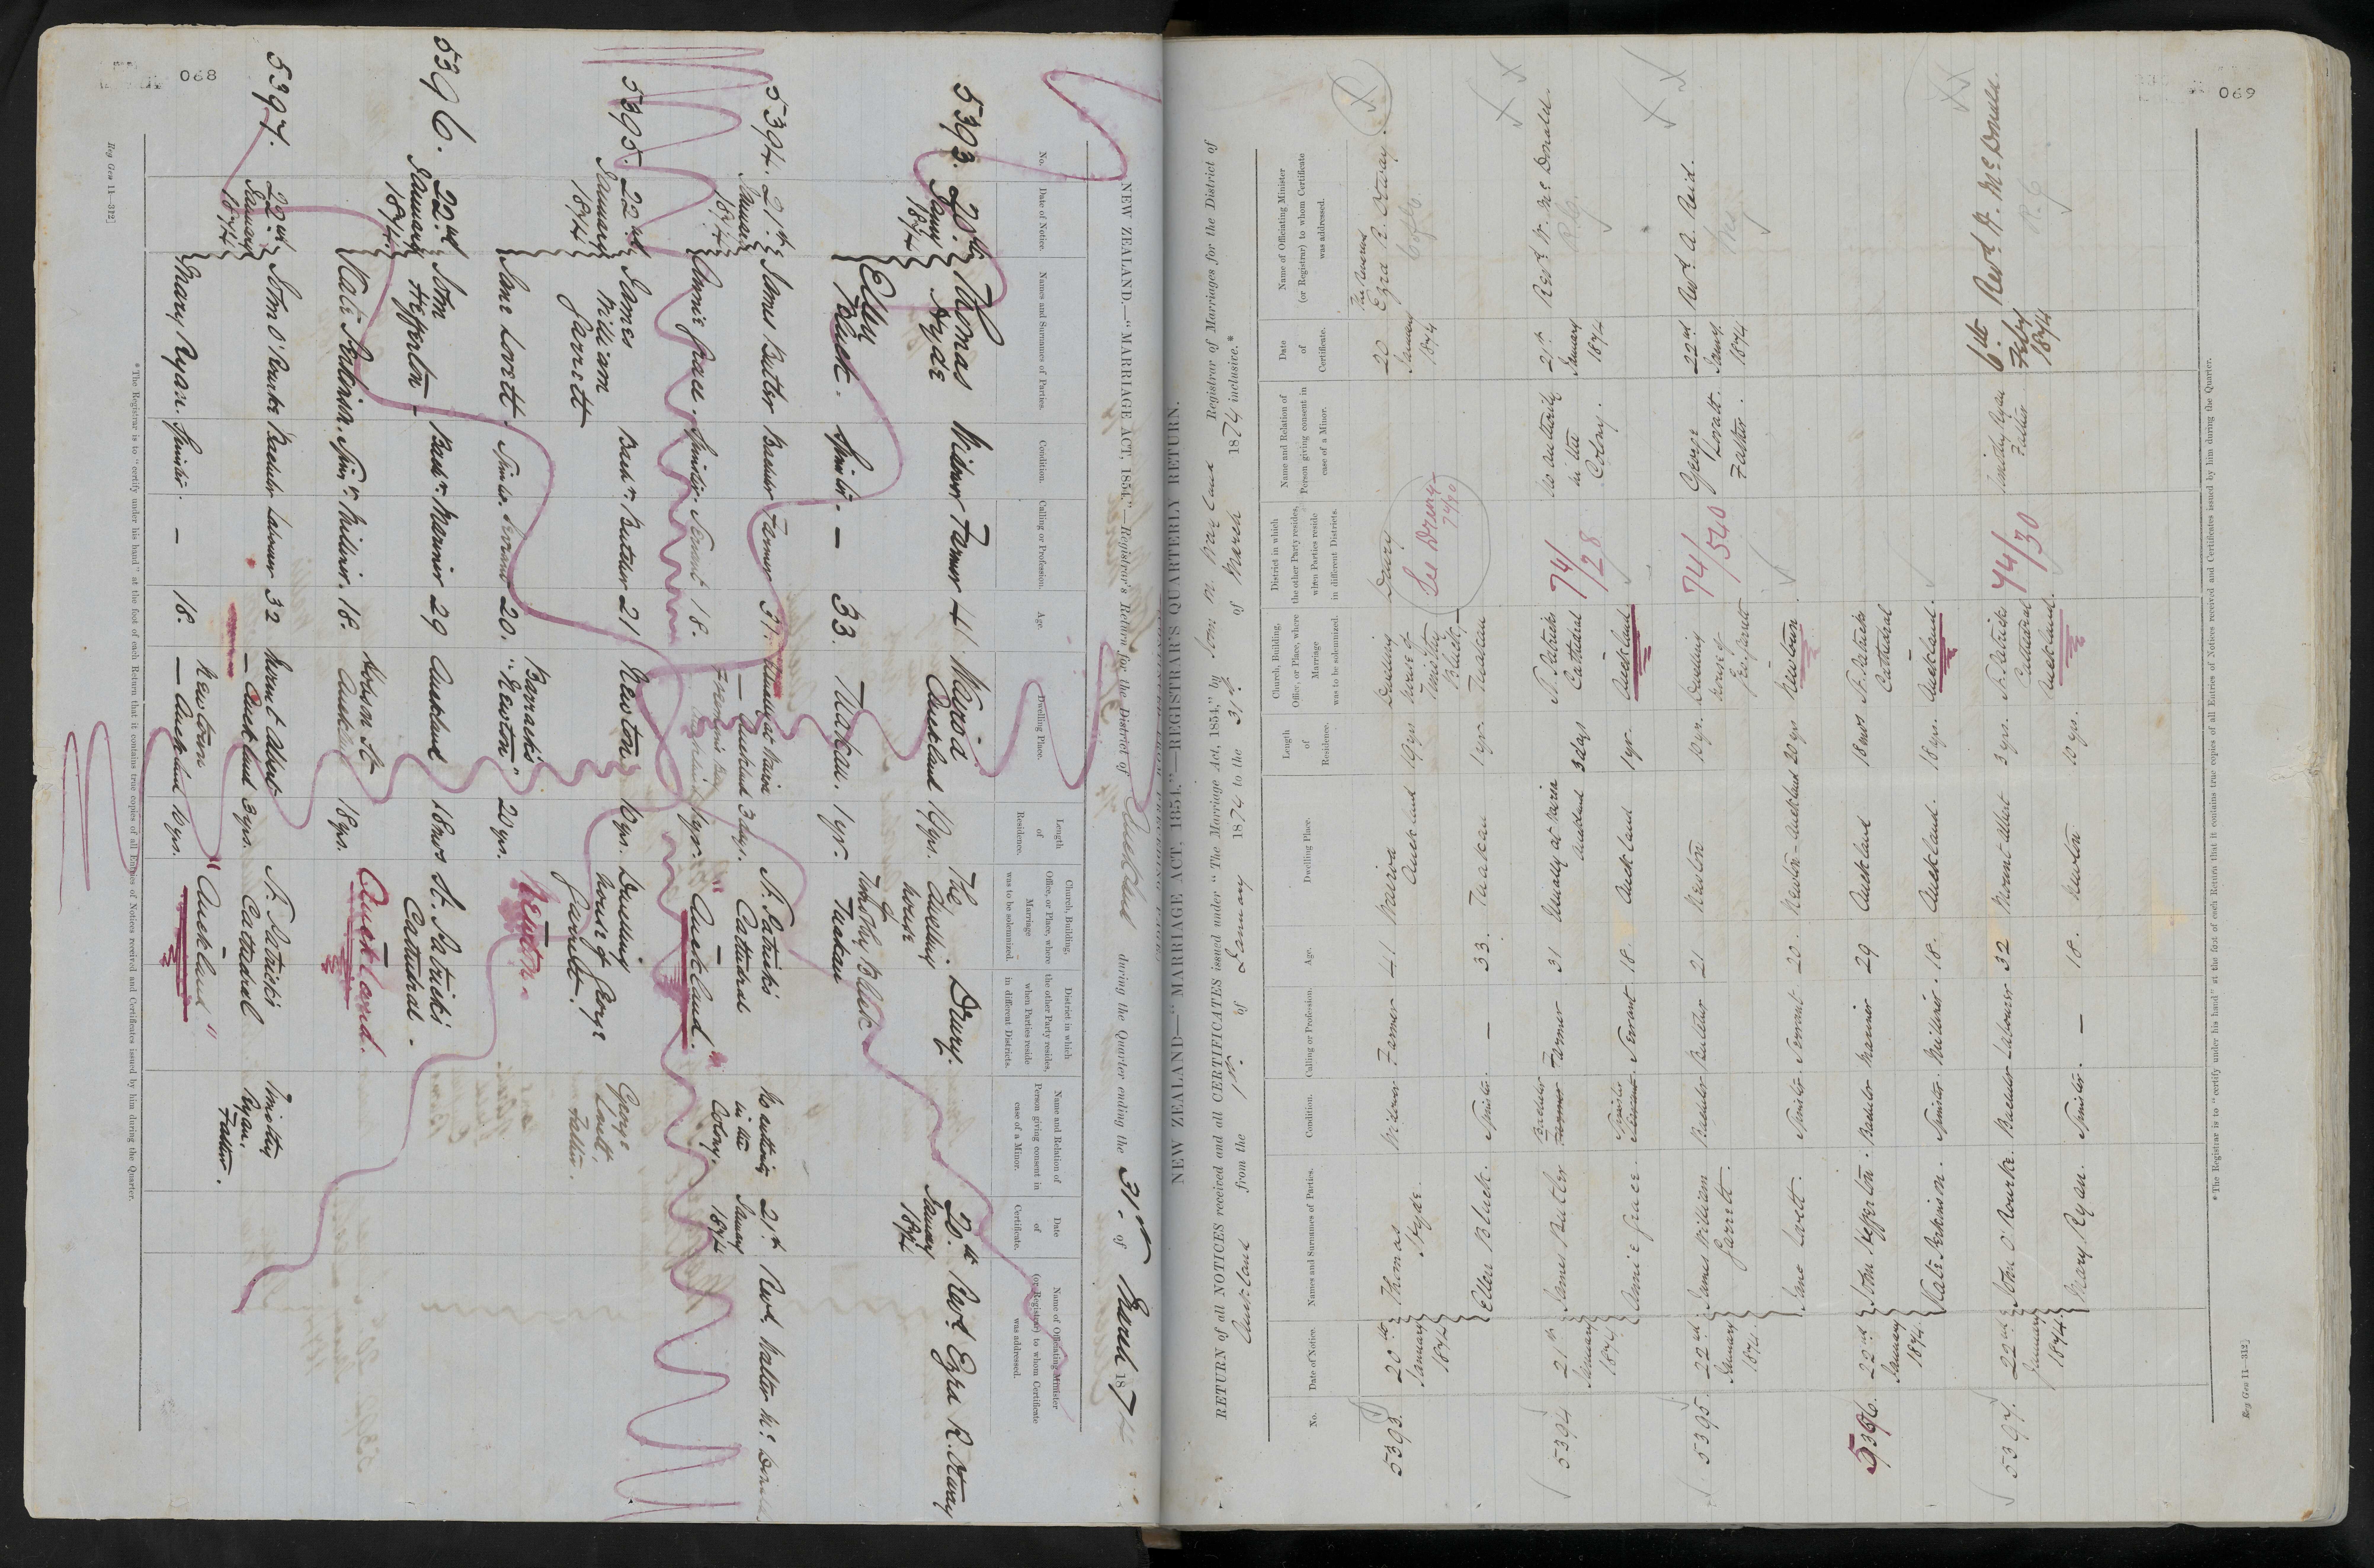 068
NEW ZEALAND.—"MARRIAGE ACT, 1854."—Registrar's Return for the District of Auckland during the Quarter ending the 31st of March 1874
No.
Date of Notice.
Names and Surnames of Parties.
Condition.
Calling or Profession.
Age.
Dwelling Place.
Length of Residence.
Church, Building, Office, or Place, where Marriage was to be solemnized.
District in which the other Party resides, when Parties reside in different Districts.
Name and Relation of Person giving consent in case of a Minor.
Date of Certificate.
Name of Officiating Minister (or Registrar) to whom Certificate was addressed.
5393. 20th Thomas Widower Farmer 41 Wairoa 19yrs. The Drury. 20th Revd. Ezra R. Otway
1874 Hyde Auckland dwelling January
house 1874
Ellen Spinster — 33. Tuakau. 1yr. of
Bluck. Timothy Bluck
Tuakau
5394. 21st James Butler Bachelor Farmer 31. Usually at Wairoa 3 days. St. Patrick's No authority 21st Revd. Walter McDonald
January — Auckland Cathedral in the January
1874 Colony. 1874
Annie Grace. Spinster Servant 18. 1yr. "Auckland."
5395. 22nd James Bachr. Butcher 21 Newton 10yrs. Dwelling George
January William house of George Lovett,
1874 Garrett Garrett. Father.
Barrack's
Jane Lovett. Servant 20. "Newton" 20yrs. Newton.
5396. 22nd John Bachr. Mariner 29 Auckland 18mos St. Patrick's
January Hefferton Cathedral.
1874
Kate Jenkinson. Spinr. Milliner. 18. Hobson St. 18yrs. Auckland.
5397. 22nd John O'Rourke Bachelor Labourer 32 Mount Albert 3yrs. St. Patrick's Timothy
January — Auckland Cathedral Ryan.
1874 Father.
Mary Ryan. Spinster. — 18. Newtown 10yrs. "Auckland"
— Auckland
* The Registrar is to "certify under his hand" at the foot of each Return that it contains true copies of all Entries of Notices received and Certificates issued by him during the Quarter.
Reg Gen 11—312]
069
NEW ZEALAND—"MARRIAGE ACT, 1854."—REGISTRAR'S QUARTERLY RETURN.
RETURN of all NOTICES received and all CERTIFICATES issued under "The Marriage Act, 1854," by Registrar of Marriages for the District of
Auckland from the 1st of January 1874 to the 31st of March 1874 inclusive.*
No.
Date of Notice.
Names and Surnames of Parties.
Condition.
Calling or Profession.
Age.
Dwelling Place.
Length of Residence.
Church, Building, Office, or Place, where Marriage was to be solemnized.
District in which the other Party resides, when Parties reside in different Districts.
Name and Relation of Person giving consent in case of a Minor.
Date of Certificate.
Name of Officiating Minister (or Registrar) to whom Certificate was addressed.
5393. 20th Thomas Widower Farmer 41 Wairoa 19yrs Dwelling Drury 20 The Reverend
January Hyde. Auckland house of January Ezra R. Otway.
1874 Timothy See Drury 1874
Bluck,
Ellen Bluck. Spinster. — 33. Tuakau 1yr. Tuakau
5394 21st James Butler Bachelor Farmer 31 Usually at Wairoa 3 days St. Patricks 74/28 No authority 21st Revd. W. McDonald.
January Farmer Auckland Cathedral in the January
1874. Colony. 1874
Annie Grace. Spinster Servant 18. Auckland 1yr. Auckland
5395. 22nd James William Bachelor Butcher 21 Newton 10yrs. Dwelling 74/540 George 22nd Revd. A. Reid.
January Garrett. house of Lovett. January
1874. Geo. Garrett Father. 1874
Jane Lovett. Spinster. Servant 20. Newton-Auckland 20yrs Newtown.
5396. 22nd John Hefferton. Bachelor Mariner 29 Auckland 18mos St. Patricks
January Cathedral
1874.
Kate Jenkinson. Spinster. Milliner. 18. Auckland. 18yrs. Auckland.
5397. 22nd John O'Rourke. Bachelor Labourer 32 Mount Albert 3yrs. St. Patricks 74/30 Timothy Ryan 6th Revd. W. McDonald.
January Cathedral Father Feby
1874. Auckland. 1874
Mary Ryan. Spinster. — 18. Newton 10yrs.
* The Registrar is to "certify under his hand" at the foot of each Return that it contains true copies of all Entries of Notices received and Certificates issued by him during the Quarter.
Reg Gen 11—312]